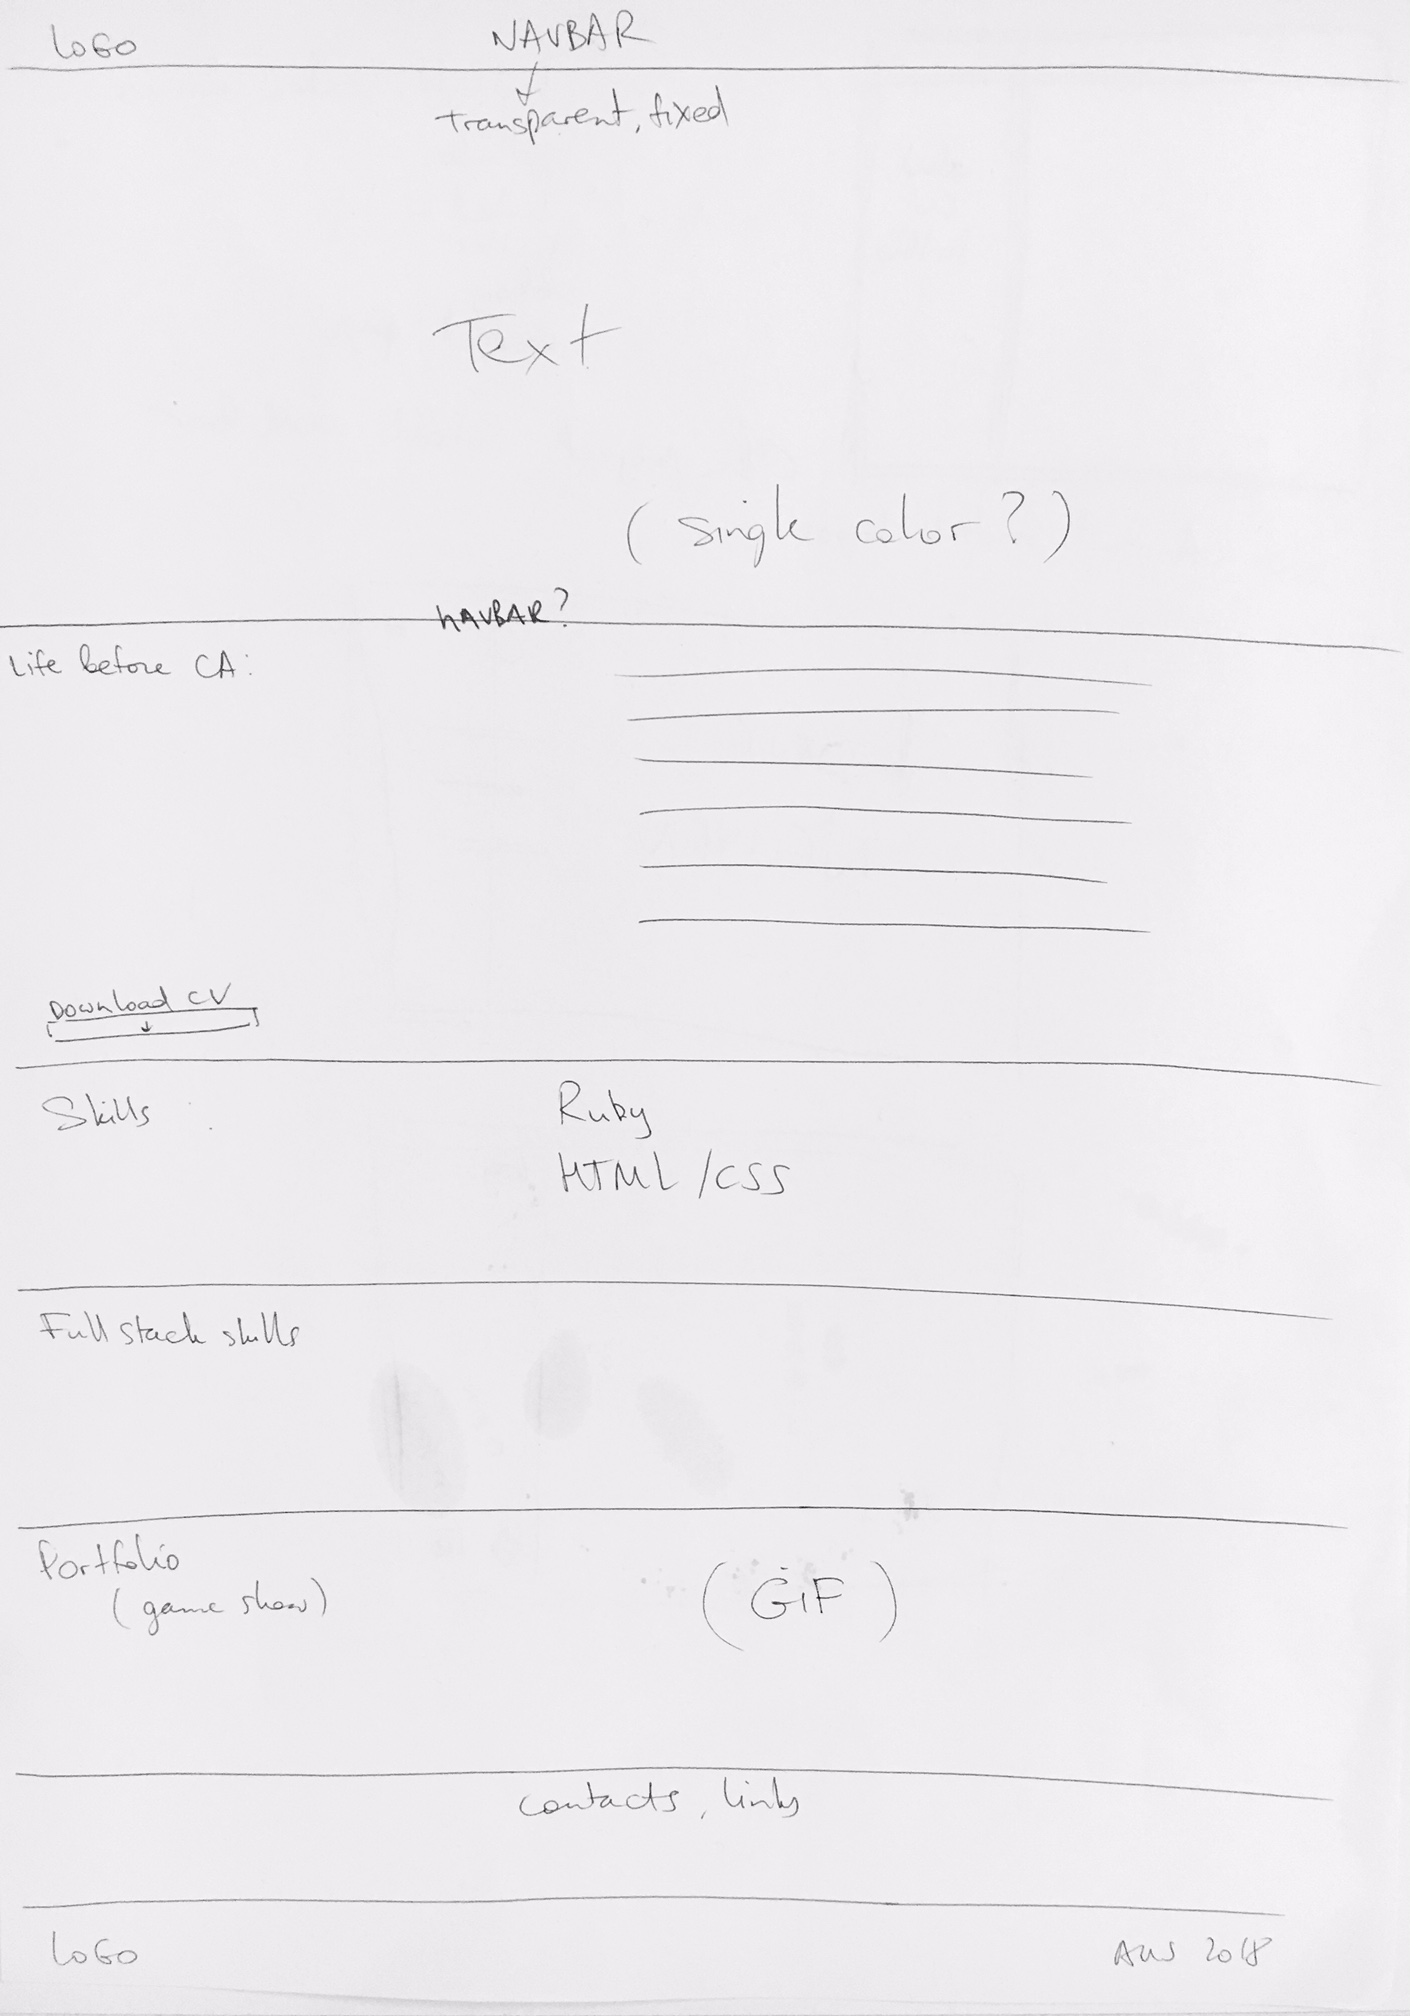 LOGO
NAVBAR
transparent, fixed
Text
(single color?)
NAVBAR?
Life before CA:
Download CV
Skills :
Ruby
HTML/CSS
Full stack skills
Portfolio
(game show)
(GiF)
contacts, links
LOGO
2018